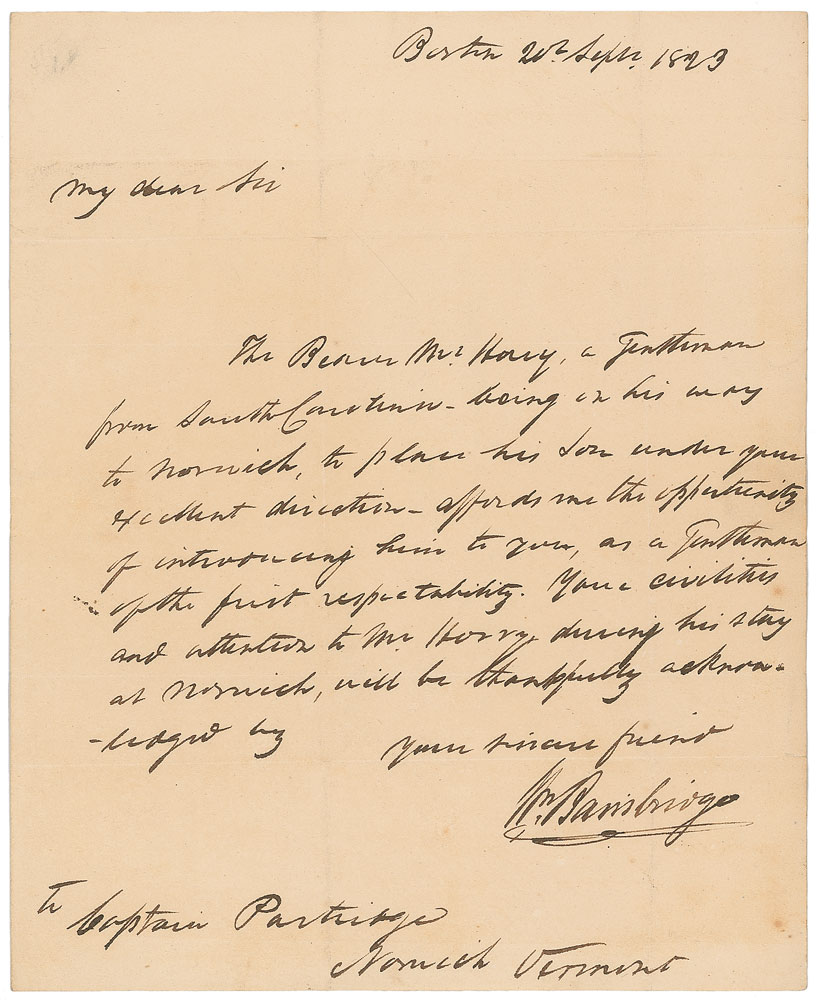 Boston 20th Septr. 1823
My dear Sir
The Bearer Mr. Horry, a Gentleman
from South Carolina - being on his way
to Norwich, to place his Son under your
excellent direction - affords me the opportunity
of introducing him to you, as a Gentleman
of the first respectability. Your civilities
and attention to Mr. Horry, during his stay
at Norwich, will be thankfully acknow-
-ledged by
your sincere friend
Wm. Bainbridge
to Captain Partridge
Norwich Vermont